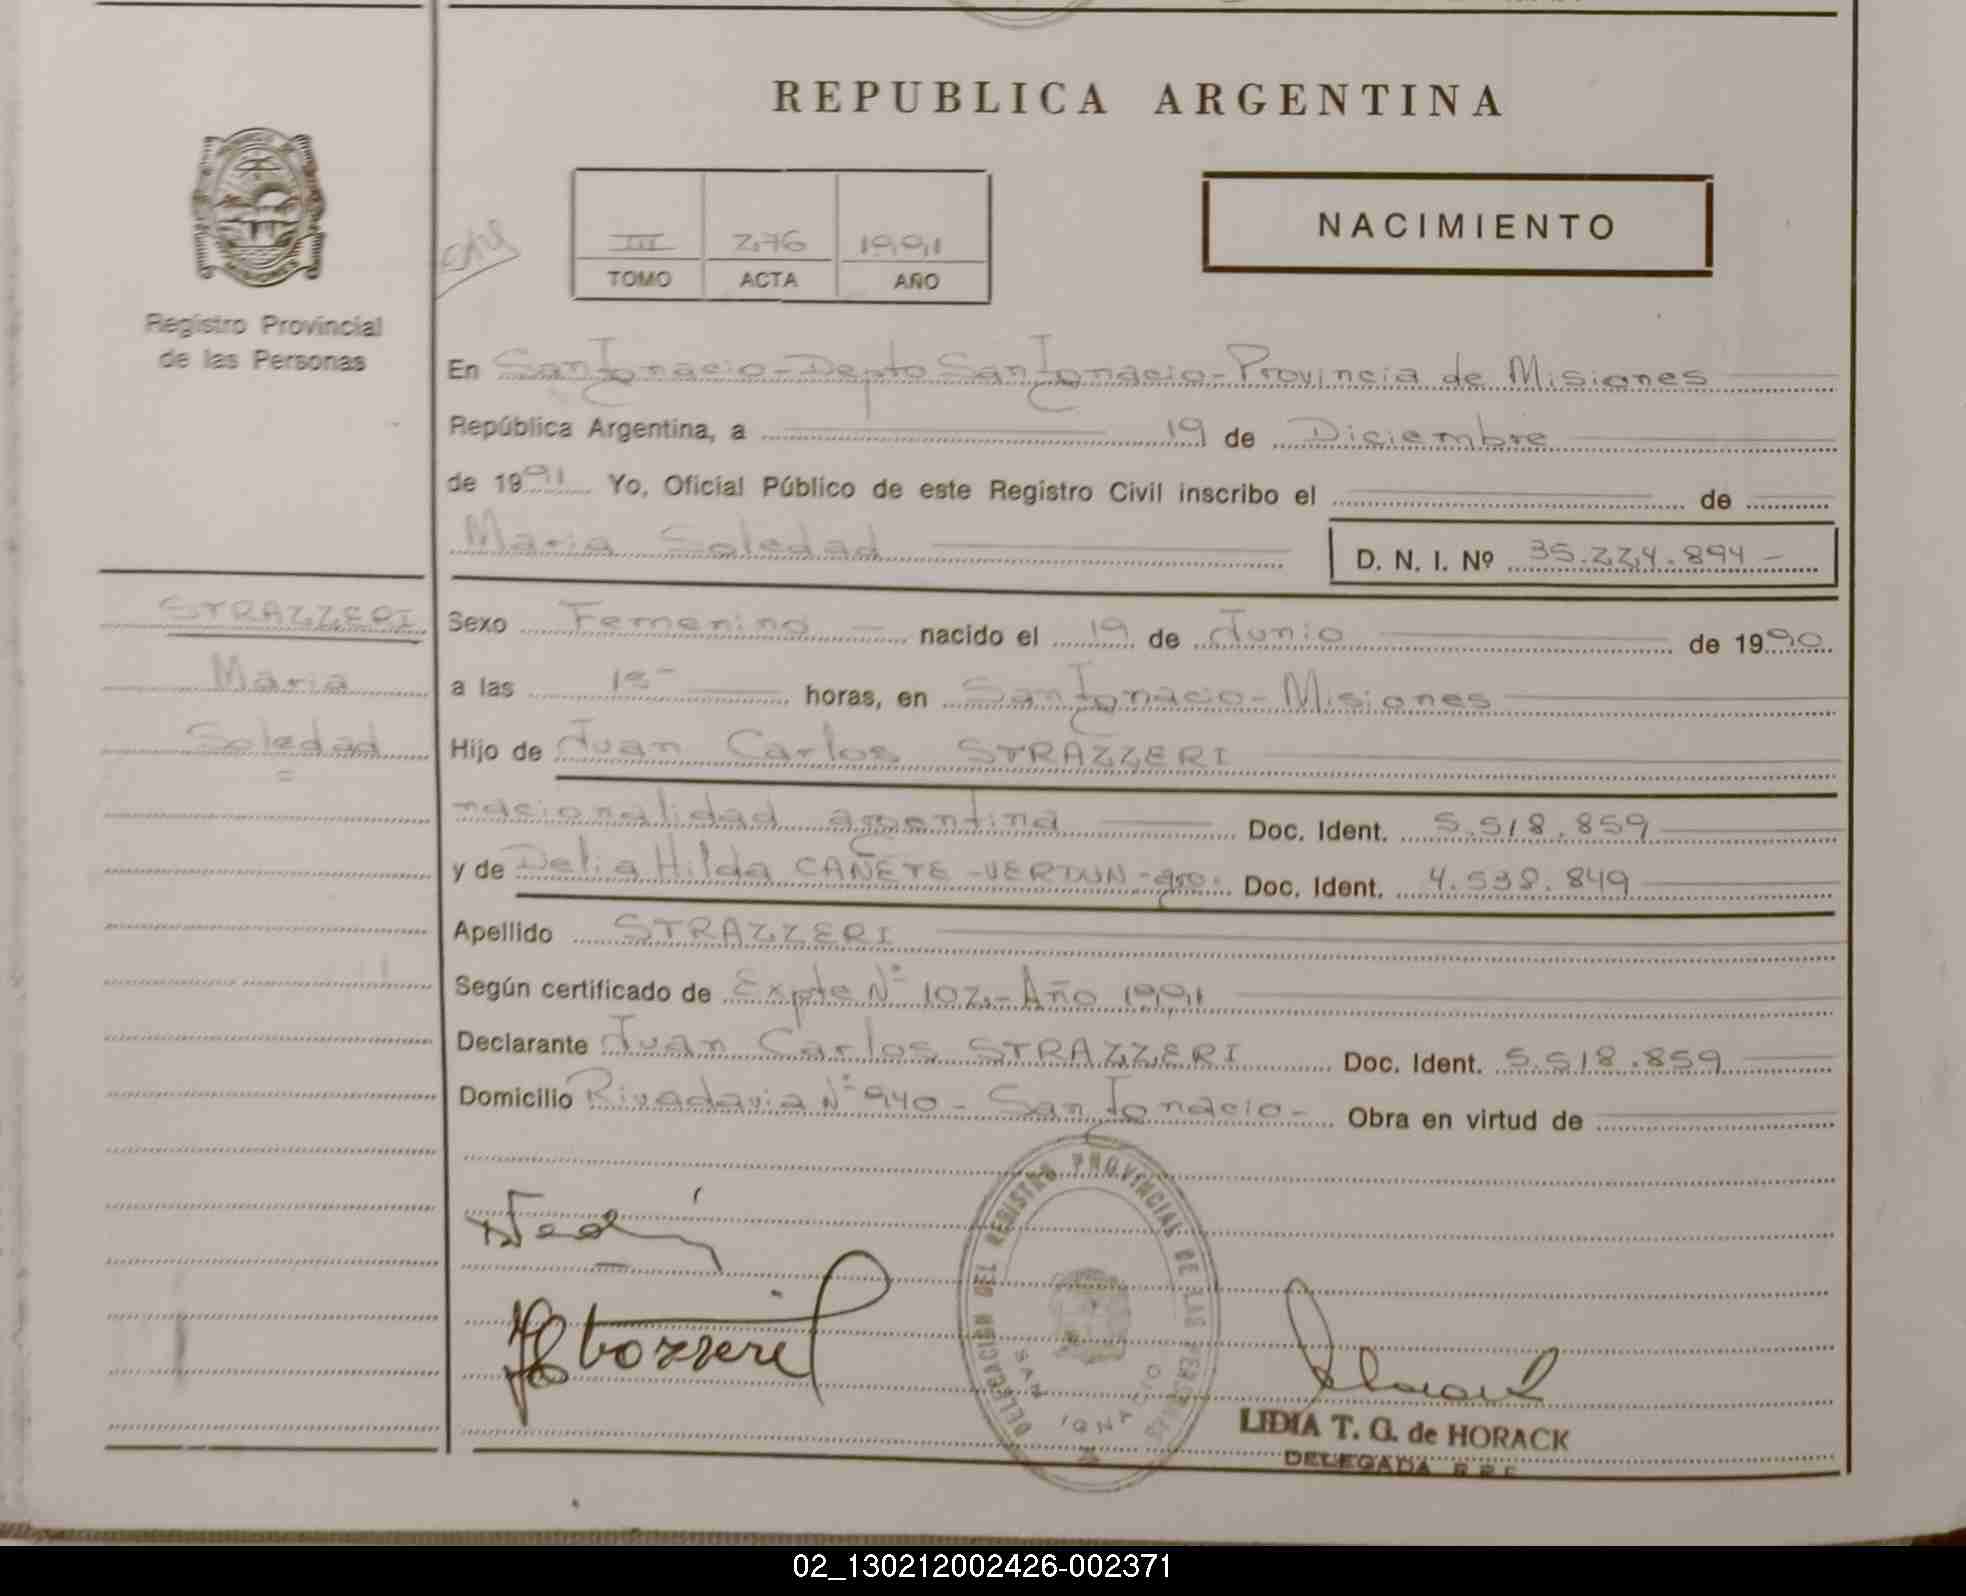 REPUBLICA ARGENTINA
NACIMIENTO
III 276 1991
TOMO ACTA AÑO
Registro Provincial
de las Personas
En San Ignacio - Depto San Ignacio - Provincia de Misiones
República Argentina, a 19 de Diciembre
de 1991 Yo, Oficial Público de este Registro Civil inscribo el de
Maria Soledad D. N. I. Nº 35.224.894 -
STRAZZERI
Maria
Soledad
Sexo Femenino - nacido el 19 de Junio de 1990
a las 15 horas, en San Ignacio - Misiones
Hijo de Juan Carlos STRAZZERI
nacionalidad argentina Doc. Ident. 5.518.859
y de Delia Hilda CAÑETE - VERDUN - Doc. Ident. 4.538.849
Apellido STRAZZERI
Según certificado de Expte Nº 102 - Año 1991
Declarante Juan Carlos STRAZZERI Doc. Ident. 5.518.859
Domicilio Rivadavia Nº 940 - San Ignacio - Obra en virtud de
DELEGACION REGISTRO PROVINCIAL DE LAS PERSONAS
SAN IGNACIO
LIDIA T. G. de HORACK
DELEGADA R.P.F.
02_130212002426-002371